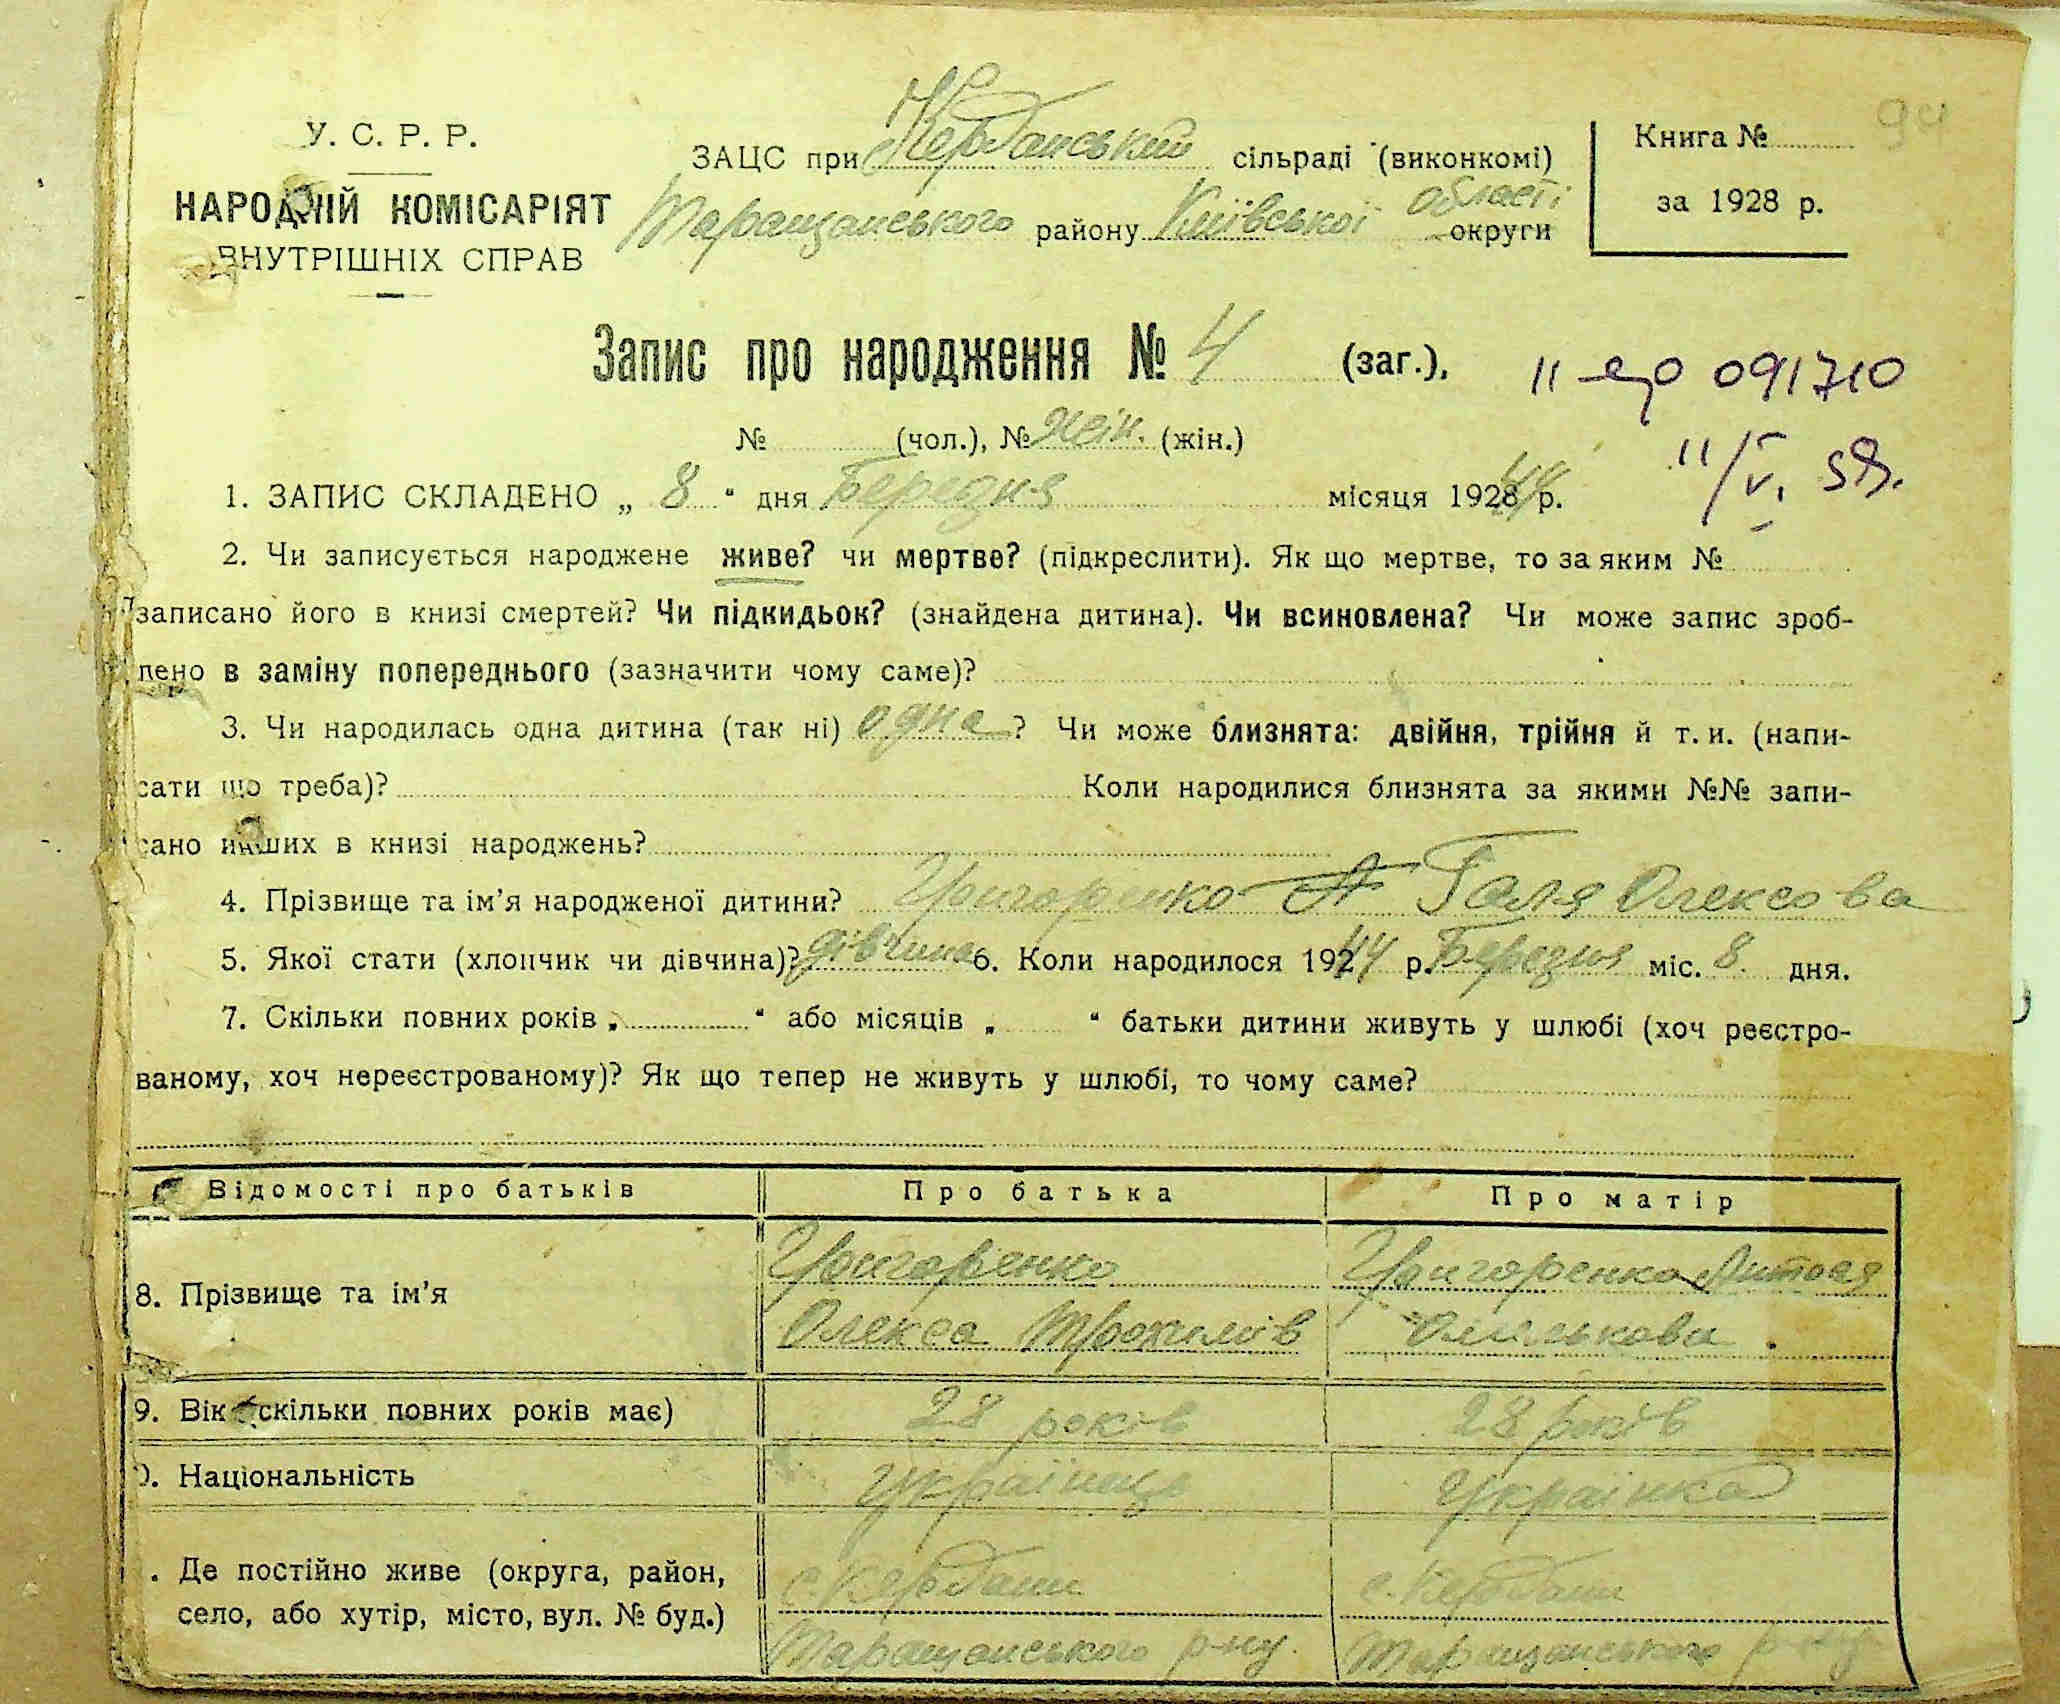 94
У. С. Р. Р.
НАРОДНІЙ КОМІСАРІЯТ
ВНУТРІШНІХ СПРАВ
ЗАЦС при Кердانський сільраді (виконкомі)
Таращанського району Київської області округи
Книга №
за 1928 р.
Запис про народження № 4 (заг.),
091710
№ (чол.), № жін. (жін.)
11/V. 59.
1. ЗАПИС СКЛАДЕНО „ 8 “ дня Березня місяця 192844 р.
2. Чи записується народжене живе? чи мертве? (підкреслити). Як що мертве, то за яким №
записано його в книзі смертей? Чи підкидьок? (знайдена дитина). Чи всиновлена? Чи може запис зроб-
лено в заміну попереднього (зазначити чому саме)?
3. Чи народилась одна дитина (так ні) одна? Чи може близнята: двійня, трійня й т. и. (напи-
сати що треба)? Коли народилися близнята за якими №№ запи-
сано инших в книзі народжень?
4. Прізвище та ім’я народженої дитини? Григоренко Галя Олексова
5. Якої стати (хлопчик чи дівчина)? дівчина 6. Коли народилося 19244 р. Березня міс. 8 дня.
7. Скільки повних років „ “ або місяців „ “ батьки дитини живуть у шлюбі (хоч реєстро-
ваному, хоч нереєстрованому)? Як що тепер не живуть у шлюбі, то чому саме?
Відомості про батьків Про батька Про матір
8. Прізвище та ім’я
Григоренко
Олекса Трохимів
Григоренко
9. Вік (скільки повних років має) 28 років 28 років
0. Національність Українець Українка
. Де постійно живе (округа, район,
село, або хутір, місто, вул. № буд.)
с. Кердани
Таращанського р-ну.
с. Кердани
Таращанського р-ну